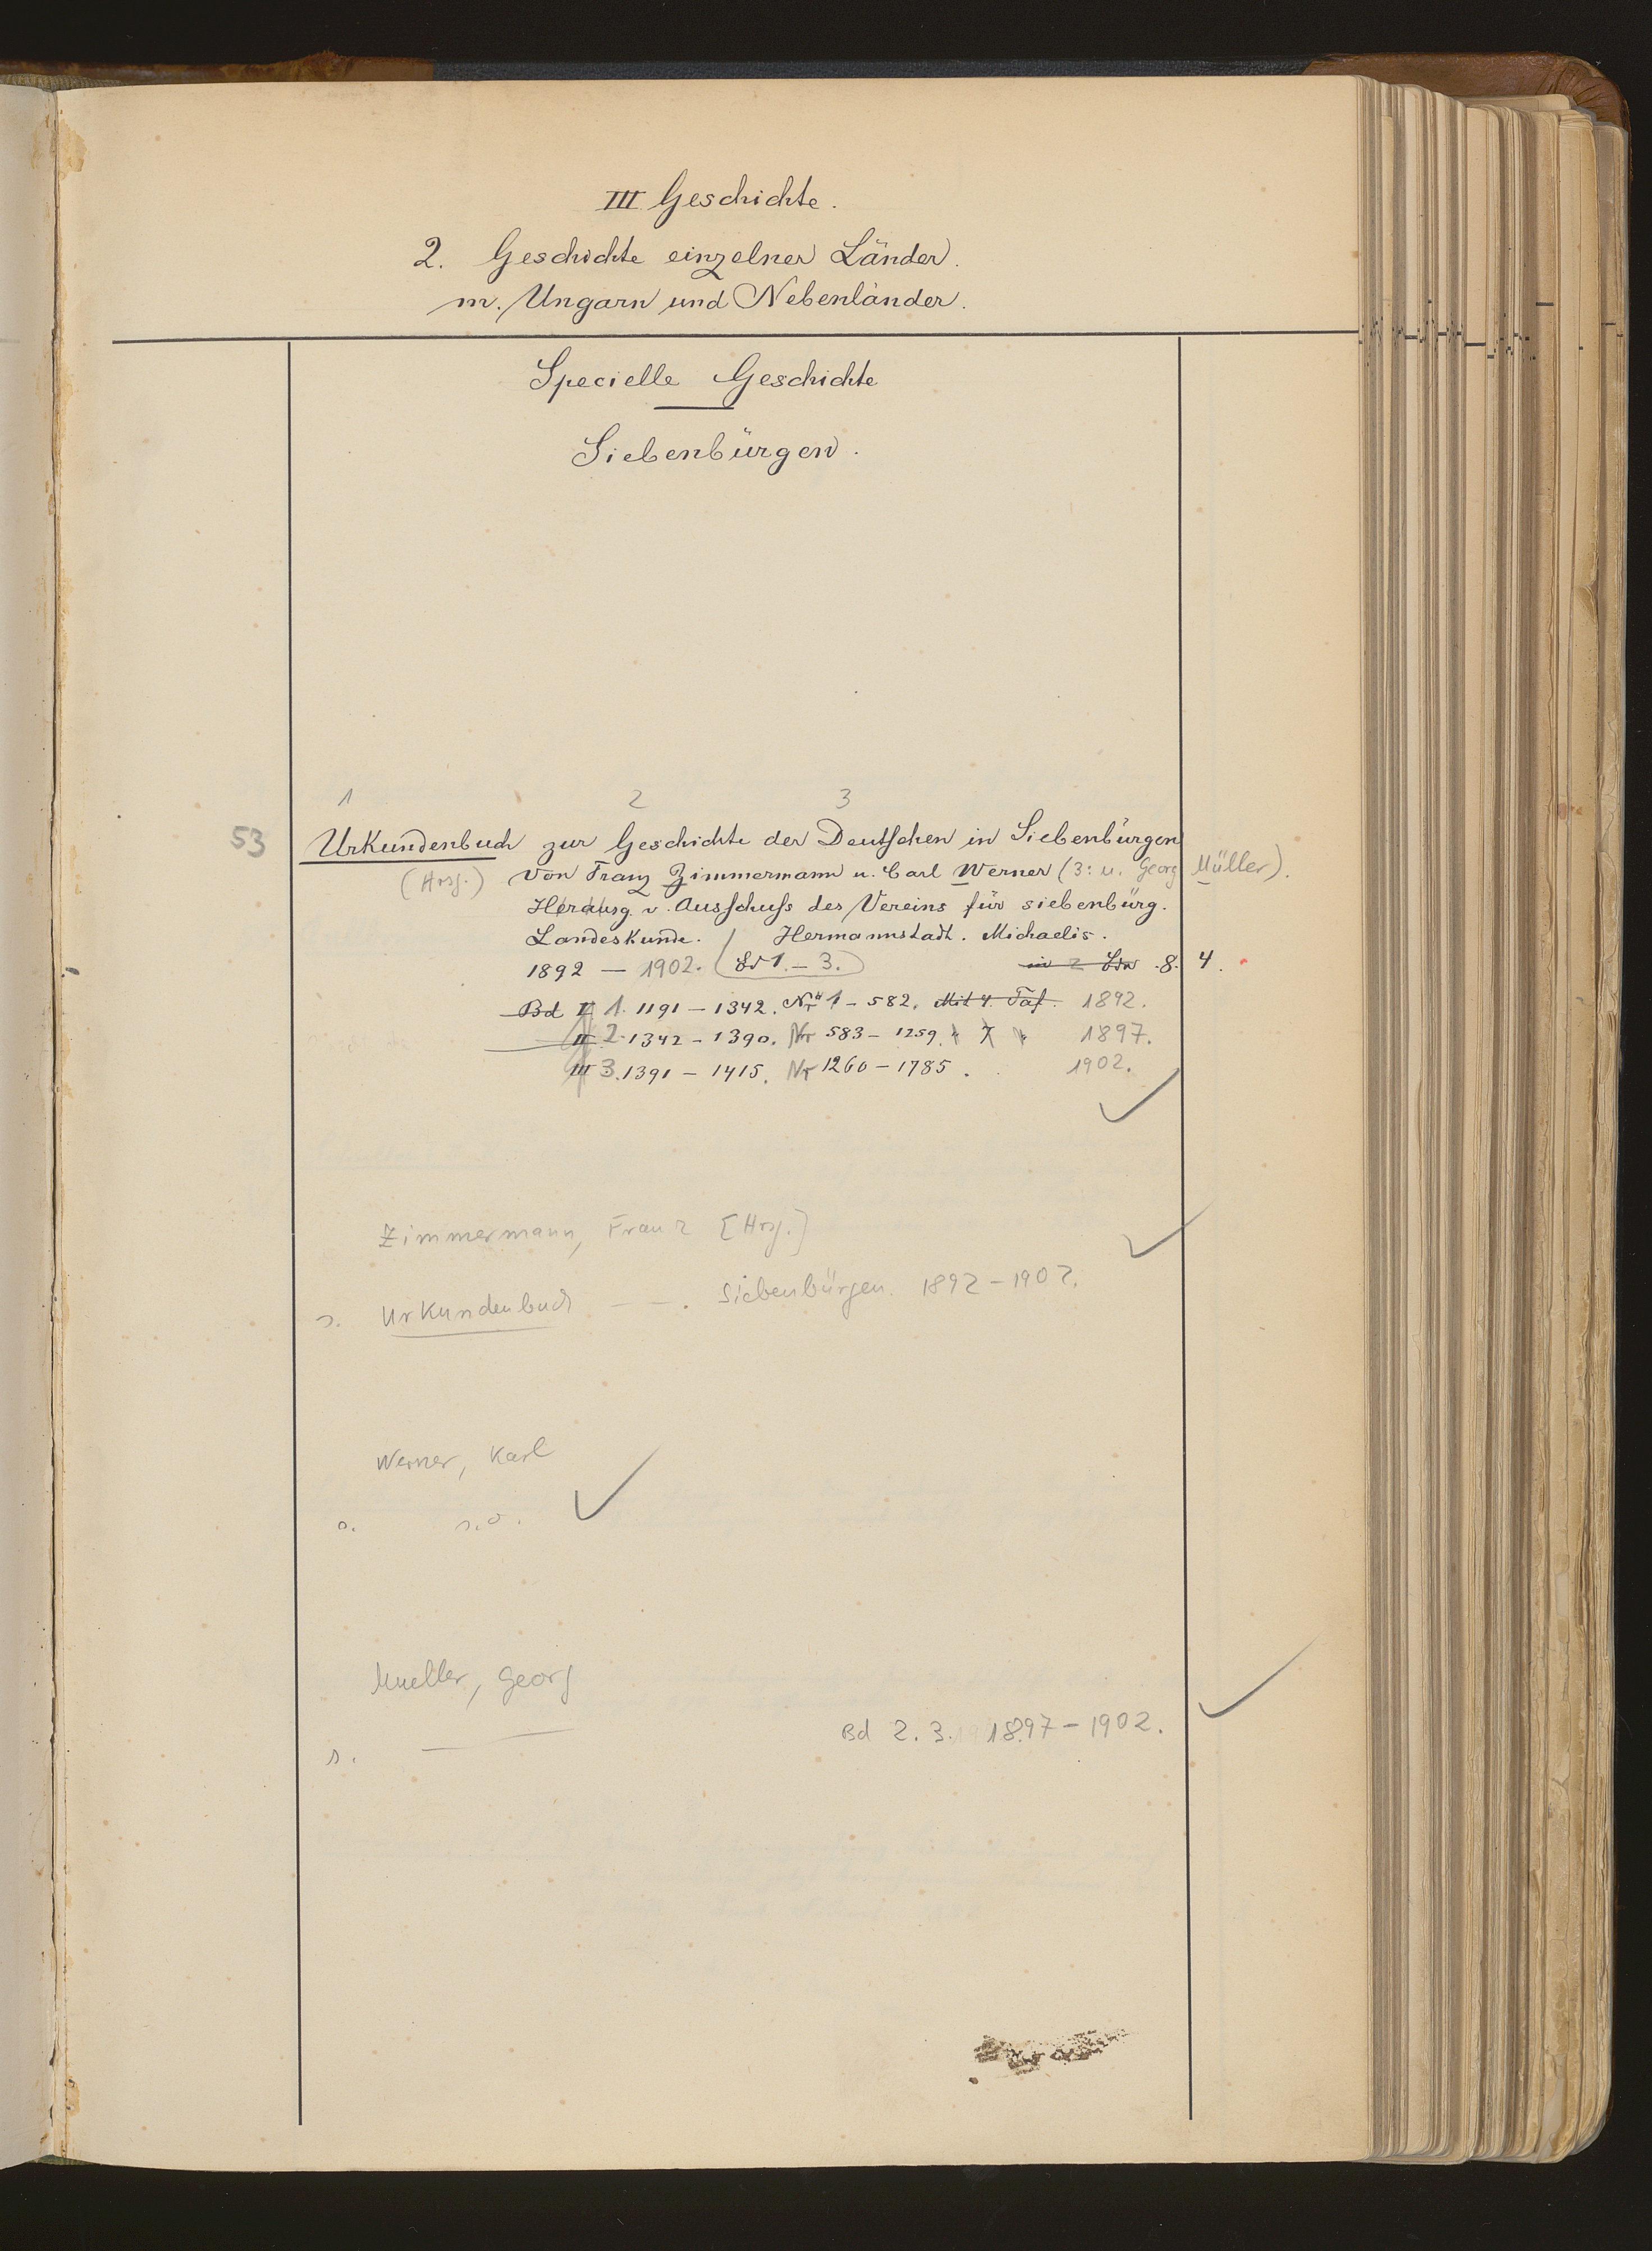 III Geschichte.
2. Geschichte einzelner Länder.
m. Ungarn und Nebenländer.
Specielle Geschichte
Siebenbürgen.
1 2 3
53 Urkundenbuch zur Geschichte der Deutschen in Siebenbürgen
(Hrsg.) von Franz Zimmermann u. Carl Werner (3: u. Georg Müller).
Herausg. v. Ausschuss des Vereins für siebenbürg.
Landeskunde. / Hermannstadt. Michaelis.
1892 – 1902. (Bd 1. – 3.) in 2 Bdn 8. 4.
Bd I 1. 1191 – 1342. Nr 1 – 582. Mit 4. Taf. 1892.
II 2. 1342 – 1390. Nr 583 – 1259. 1897.
III 3. 1391 – 1415. Nr 1260 – 1785. 1902.
Zimmermann, Franz [Hrsg.]
s. Urkundenbuch – – . Siebenbürgen. 1892 – 1902.
Werner, Karl
s. s.o.
Mueller, Georg
Bd 2. 3. 1897 – 1902.
s.